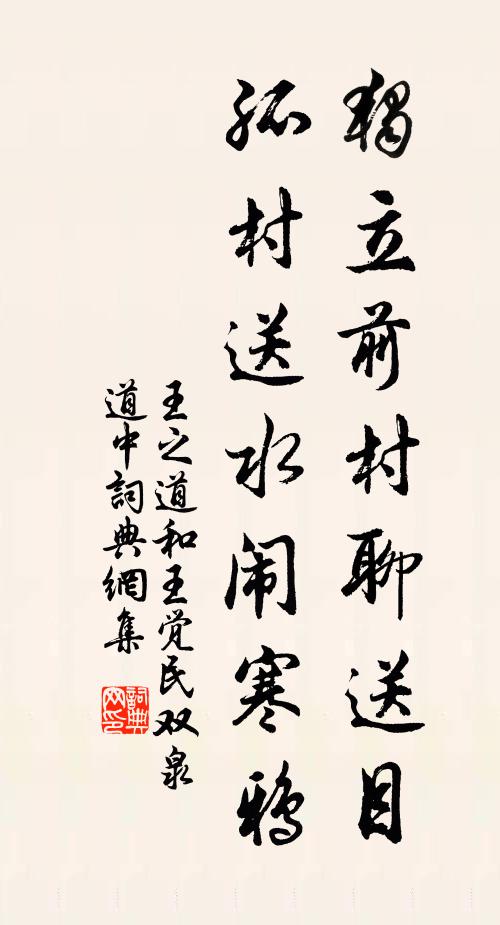 獨立前村聊送目
孤村送水闹寒鴉
王之道和王觉民双泉
道中詞典網集
詞典网印